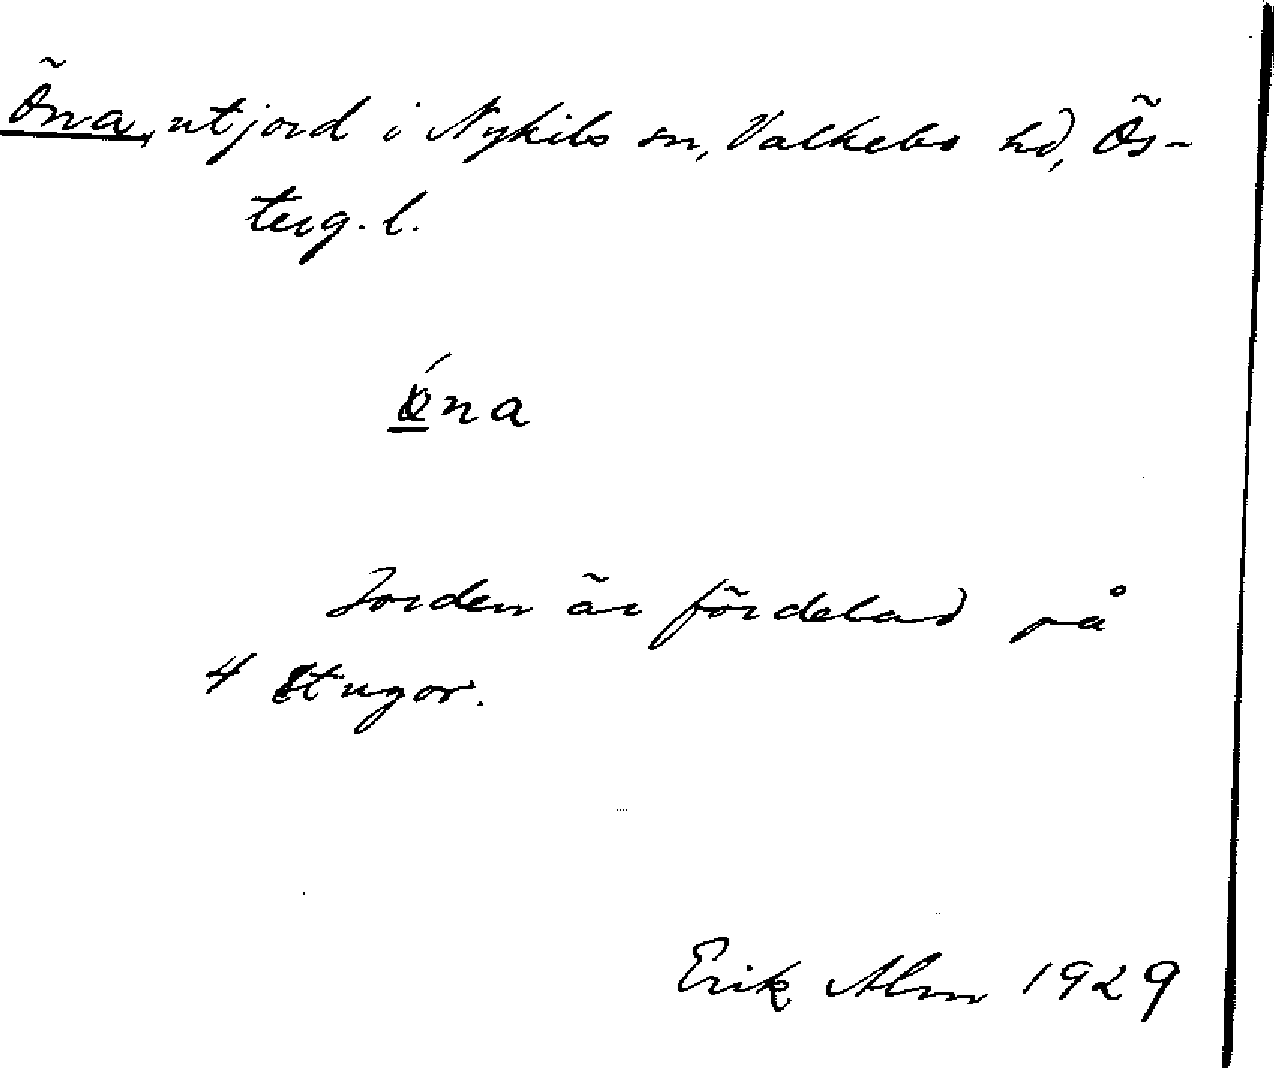 Öna, utjord i Nykils sn, Valkebo hd, Ös-
terg. l.
ǿna
Jorden är fördelad på
4 stugor.
Erik Alm 1929